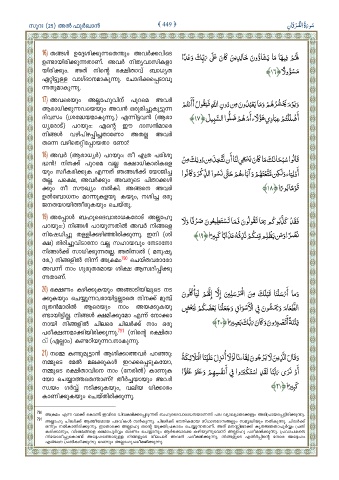 സൂറ (25) അൽ ഫുർഖാൻ
﴾ 449 ﴿
سُورَةُ الْفُرْقَانِ
16) തങ്ങൾ ഉദ്ദേശിക്കുന്നതെന്തും അവർക്കവിടെ
ഉണ്ടായിരിക്കുന്നതാണ്. അവർ നിത്യവാസികളാ
യിരിക്കും. അത് നിന്റെ രക്ഷിതാവ് ബാധ്യത
ഏറ്റിട്ടുള്ള വാഗ്ദാനമാകുന്നു. ചോദിക്കപ്പെടാവു
ന്നതുമാകുന്നു.
لَهُمْ فِيهَا مَا يَشَاءُونَ خَالِدِينَ كَانَ عَلَىٰ رَبِّكَ وَعْدًا
مَسْئُولًا ﴿١٦﴾
17) അവരെയും അല്ലാഹുവിന് പുറമെ അവർ
ആരാധിക്കുന്നവയെയും അവൻ ഒരുമിച്ചുകൂട്ടുന്ന
ദിവസം (ശ്രദ്ധേയമാകുന്നു.) എന്നിട്ടവൻ (ആരാ
ധ്യരോട്) പറയും: എന്റെ ഈ ദാസൻമാരെ
നിങ്ങൾ വഴിപിഴപ്പിച്ചതാണോ അതല്ല അവർ
തന്നെ വഴിതെറ്റിപ്പോയതാ ണോ?
وَيَوْمَ يَحْشُرُهُمْ وَمَا يَعْبُدُونَ مِنْ دُونِ اللَّهِ فَيَقُولُ أَأَنْتُمْ
أَضْلَلْتُمْ عِبَادِي هَٰؤُلَاءِ أَمْ هُمْ ضَلُّوا السَّبِيلَ ﴿١٧﴾
18) അവർ (ആരാധ്യർ) പറയും: നീ എത്ര പരിശു
ദ്ധൻ! നിനക്ക് പുറമെ വല്ല രക്ഷാധികാരികളെ
യും സ്വീകരിക്കുക എന്നത് ഞങ്ങൾക്ക് യോജിച്ച
തല്ല. പക്ഷെ, അവർക്കും അവരുടെ പിതാക്കൾ
ക്കും നീ സൗഖ്യം നൽകി. അങ്ങനെ അവർ
ഉൽബോധനം മറന്നുകളയു കയും, നശിച്ച ഒരു
ജനതയായിത്തീരുകയും ചെയ്തു.
قَالُوا سُبْحَانَكَ مَا كَانَ يَنْبَغِي لَنَا أَنْ نَتَّخِذَ مِنْ دُونِكَ مِنْ
أَوْلِيَاءَ وَلَٰكِنْ مَتَّعْتَهُمْ وَآبَاءَهُمْ حَتَّىٰ نَسُوا الذِّكْرَ وَكَانُوا
قَوْمًا بُورًا ﴿١٨﴾
19) അപ്പോൾ ബഹുദൈവാരാധകരോട് അല്ലാഹു
പറയും:) നിങ്ങൾ പറയുന്നതിൽ അവർ നിങ്ങളെ
നിഷേധിച്ചു തള്ളിക്കഴിഞ്ഞിരിക്കുന്നു. ഇനി (ശി
ക്ഷ) തിരിച്ചുവിടാനോ വല്ല സഹായവും നേടാനോ
നിങ്ങൾക്ക് സാധിക്കുന്നതല്ല. അതിനാൽ (മനുഷ്യ
രേ,) നിങ്ങളിൽ നിന്ന് അക്രമം ചെയ്തവരാരോ
അവന്ന് നാം ഗുരുതരമായ ശിക്ഷ ആസ്വദിപ്പിക്കു
ന്നതാണ്.
فَقَدْ كَذَّبُوكُمْ بِمَا تَقُولُونَ فَمَا تَسْتَطِيعُونَ صَرْفًا وَلَا
نَصْرًا وَمَنْ يَظْلِمْ مِنْكُمْ نُذِقْهُ عَذَابًا كَبِيرًا ﴿١٩﴾
20) ഭക്ഷണം കഴിക്കുകയും അങ്ങാടിയിലൂടെ നട
ക്കുകയും ചെയ്യുന്നവരായിട്ടല്ലാതെ നിനക്ക് മുമ്പ്
ദൂതൻമാരിൽ ആരെയും നാം അയക്കുകയു
ണ്ടായിട്ടില്ല. നിങ്ങൾ ക്ഷമിക്കുമോ എന്ന് നോക്കാ
നായി നിങ്ങളിൽ ചിലരെ ചിലർക്ക് നാം ഒരു
പരീക്ഷണമാക്കിയിരിക്കുന്നു. (നിന്റെ രക്ഷിതാ
വ് (എല്ലാം) കണ്ടറിയുന്നവനാകുന്നു.
وَمَا أَرْسَلْنَا قَبْلَكَ مِنَ الْمُرْسَلِينَ إِلَّا إِنَّهُمْ لَيَأْكُلُونَ
الطَّعَامَ وَيَمْشُونَ فِي الْأَسْوَاقِ وَجَعَلْنَا بَعْضَكُمْ لِبَعْضٍ
فِتْنَةً أَتَصْبِرُونَ وَكَانَ رَبُّكَ بَصِيرًا ﴿٢٠﴾
21) നമ്മെ കണ്ടുമുട്ടാൻ ആശിക്കാത്തവർ പറഞ്ഞു:
നമ്മുടെ മേൽ മലക്കുകൾ ഇറക്കപ്പെടുകയോ,
നമ്മുടെ രക്ഷിതാവിനെ നാം (നേരിൽ) കാണുക
യോ ചെയ്യാത്തതെന്താണ്? തീർച്ചയായും അവർ
സ്വയം ഗർവ്വ് നടിക്കുകയും, വലിയ ധിക്കാരം
കാണിക്കുകയും ചെയ്തിരിക്കുന്നു.
وَقَالَ الَّذِينَ لَا يَرْجُونَ لِقَاءَنَا لَوْلَا أُنْزِلَ عَلَيْنَا الْمَلَائِكَةُ
أَوْ نَرَىٰ رَبَّنَا لَقَدِ اسْتَكْبَرُوا فِي أَنْفُسِهِمْ وَعَتَوْا عُتُوًّا
كَبِيرًا ﴿٢١﴾